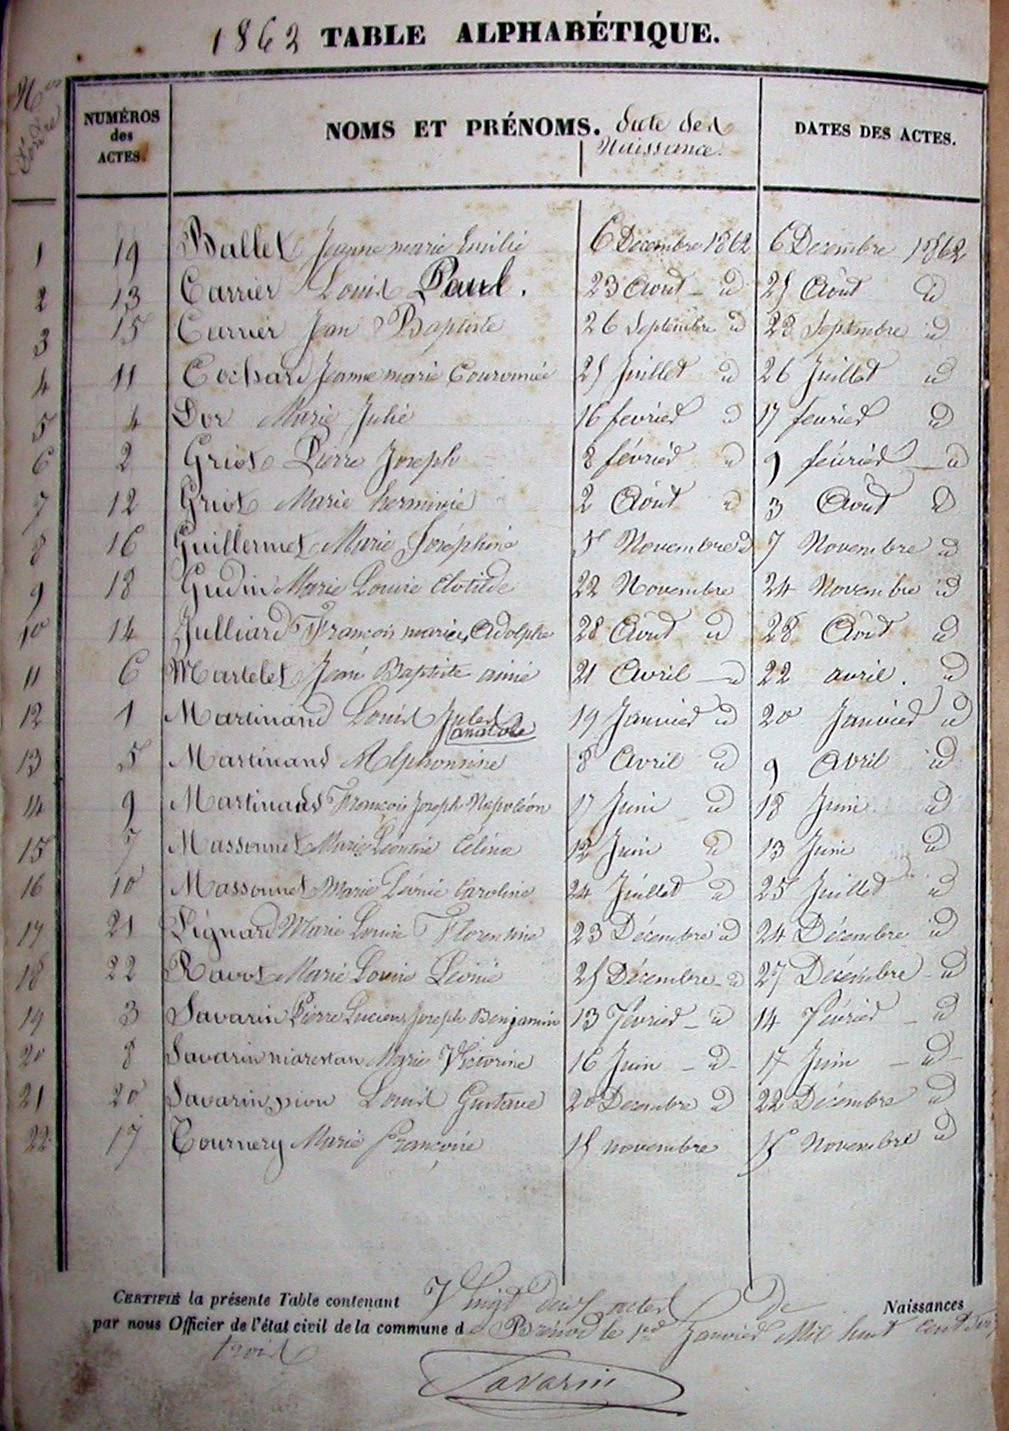 1862 TABLE ALPHABÉTIQUE.
Nos d'ordre
NUMÉROS des ACTES.
NOMS ET PRÉNOMS. date des Naissance.
DATES DES ACTES.
1 19 Ballet Jeanne marie Emilie 6 Décembre 1862 6 Decembre 1862
2 13 Carrier Louis Paul. 23 Aout - id 25 Aôut id
3 15 Carrier Jean Baptiste 26 Septembre id 28 Septembre id
4 11 Cochard Jeanne marie 25 Juillet id 26 Juillet id
5 4 Dor Marie Julie 16 fevrier id 17 fevrier id
6 2 Griot Pierre Joseph 8 février id 9 février id
7 12 Griot Marie herminie 2 Aôut id 3 Aôut id
8 16 Guillermet Marie Joséphine 5 Novembre id 7 Novembre id
9 18 Gudin Marie Louise Clotilde 22 Novembre 24 Novembre id
10 14 Julliard François marie Adolphe 28 Aôut id 28 Aôut id
11 6 Martelet Jean Baptiste aimé 21 Avril id 22 avril. id
12 1 Martinand Louis Jules anatole 19 Janvier id 20 Janvier id
13 5 Martinand Alphonsine 8 Avril id 9 Avril id
14 9 Martinand François Joseph Napoléon 17 Juin id 18 Juin id
15 7 Massonnet Marie Léontine Célina 12 Juin id 13 Juin id
16 10 Massonnet Marie Léonie Caroline 24 Juillet id 25 Juillet id
17 21 Pignard Marie Louise Florentine 23 Décembre id 24 Décembre id
18 22 Ravot Marie Louise Léonie 25 Décembre id 27 Décembre - id
19 3 Savarin Pierre Lucien Joseph Benjamin 13 Février - id 14 Février - id
20 8 Savarin marestan Marie Victorine 16 Juin - id - 17 Juin - id -
21 20 Savarin pion Louis Gustave 20 Decembre id 22 Décembre id
22 17 Tournery Marie Françoise 15 novembre 15 Novembre id
CERTIFIÉ la présente Table contenant Vingt deux actes De Naissances
par nous Officier de l'état civil de la commune de Brénod le 1er Janvier Mil huit cent
trois
Savarin